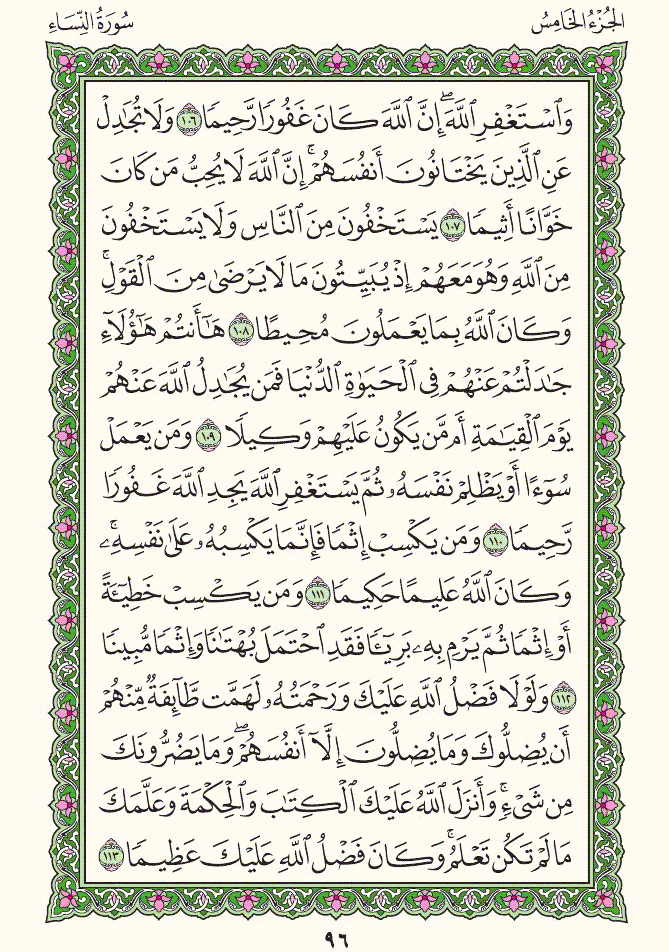 الجُزْءُ الخَامِسُ
سُورَةُ النِّسَاءِ
وَٱسْتَغْفِرِ ٱللَّهَۖ إِنَّ ٱللَّهَ كَانَ غَفُورٗا رَّحِيمٗا ١٠٦ وَلَا تُجَٰدِلْ
عَنِ ٱلَّذِينَ يَخْتَانُونَ أَنفُسَهُمْۚ إِنَّ ٱللَّهَ لَا يُحِبُّ مَن كَانَ
خَوَّانًا أَثِيمٗا ١٠٧ يَسْتَخْفُونَ مِنَ ٱلنَّاسِ وَلَا يَسْتَخْفُونَ
مِنَ ٱللَّهِ وَهُوَ مَعَهُمْ إِذْ يُبَيِّتُونَ مَا لَا يَرْضَىٰ مِنَ ٱلْقَوْلِۚ
وَكَانَ ٱللَّهُ بِمَا يَعْمَلُونَ مُحِيطًا ١٠٨ هَٰٓأَنتُمْ هَٰٓؤُلَآءِ
جَٰدَلْتُمْ عَنْهُمْ فِي ٱلْحَيَوٰةِ ٱلدُّنْيَا فَمَن يُجَٰدِلُ ٱللَّهَ عَنْهُمْ
يَوْمَ ٱلْقِيَٰمَةِ أَم مَّن يَكُونُ عَلَيْهِمْ وَكِيلٗا ١٠٩ وَمَن يَعْمَلْ
سُوٓءًا أَوْ يَظْلِمْ نَفْسَهُۥ ثُمَّ يَسْتَغْفِرِ ٱللَّهَ يَجِدِ ٱللَّهَ غَفُورٗا
رَّحِيمٗا ١١٠ وَمَن يَكْسِبْ إِثْمٗا فَإِنَّمَا يَكْسِبُهُۥ عَلَىٰ نَفْسِهِۦۚ
وَكَانَ ٱللَّهُ عَلِيمًا حَكِيمٗا ١١١ وَمَن يَكْسِبْ خَطِيٓـَٔةً
أَوْ إِثْمٗا ثُمَّ يَرْمِ بِهِۦ بَرِيٓـٔٗا فَقَدِ ٱحْتَمَلَ بُهْتَٰنٗا وَإِثْمٗا مُّبِينٗا
١١٢ وَلَوْلَا فَضْلُ ٱللَّهِ عَلَيْكَ وَرَحْمَتُهُۥ لَهَمَّت طَّآئِفَةٞ مِّنْهُمْ
أَن يُضِلُّوكَ وَمَا يُضِلُّونَ إِلَّآ أَنفُسَهُمْۖ وَمَا يَضُرُّونَكَ
مِن شَيْءٖۚ وَأَنزَلَ ٱللَّهُ عَلَيْكَ ٱلْكِتَٰبَ وَٱلْحِكْمَةَ وَعَلَّمَكَ
مَا لَمْ تَكُن تَعْلَمُۚ وَكَانَ فَضْلُ ٱللَّهِ عَلَيْكَ عَظِيمٗا ١١٣
٩٦